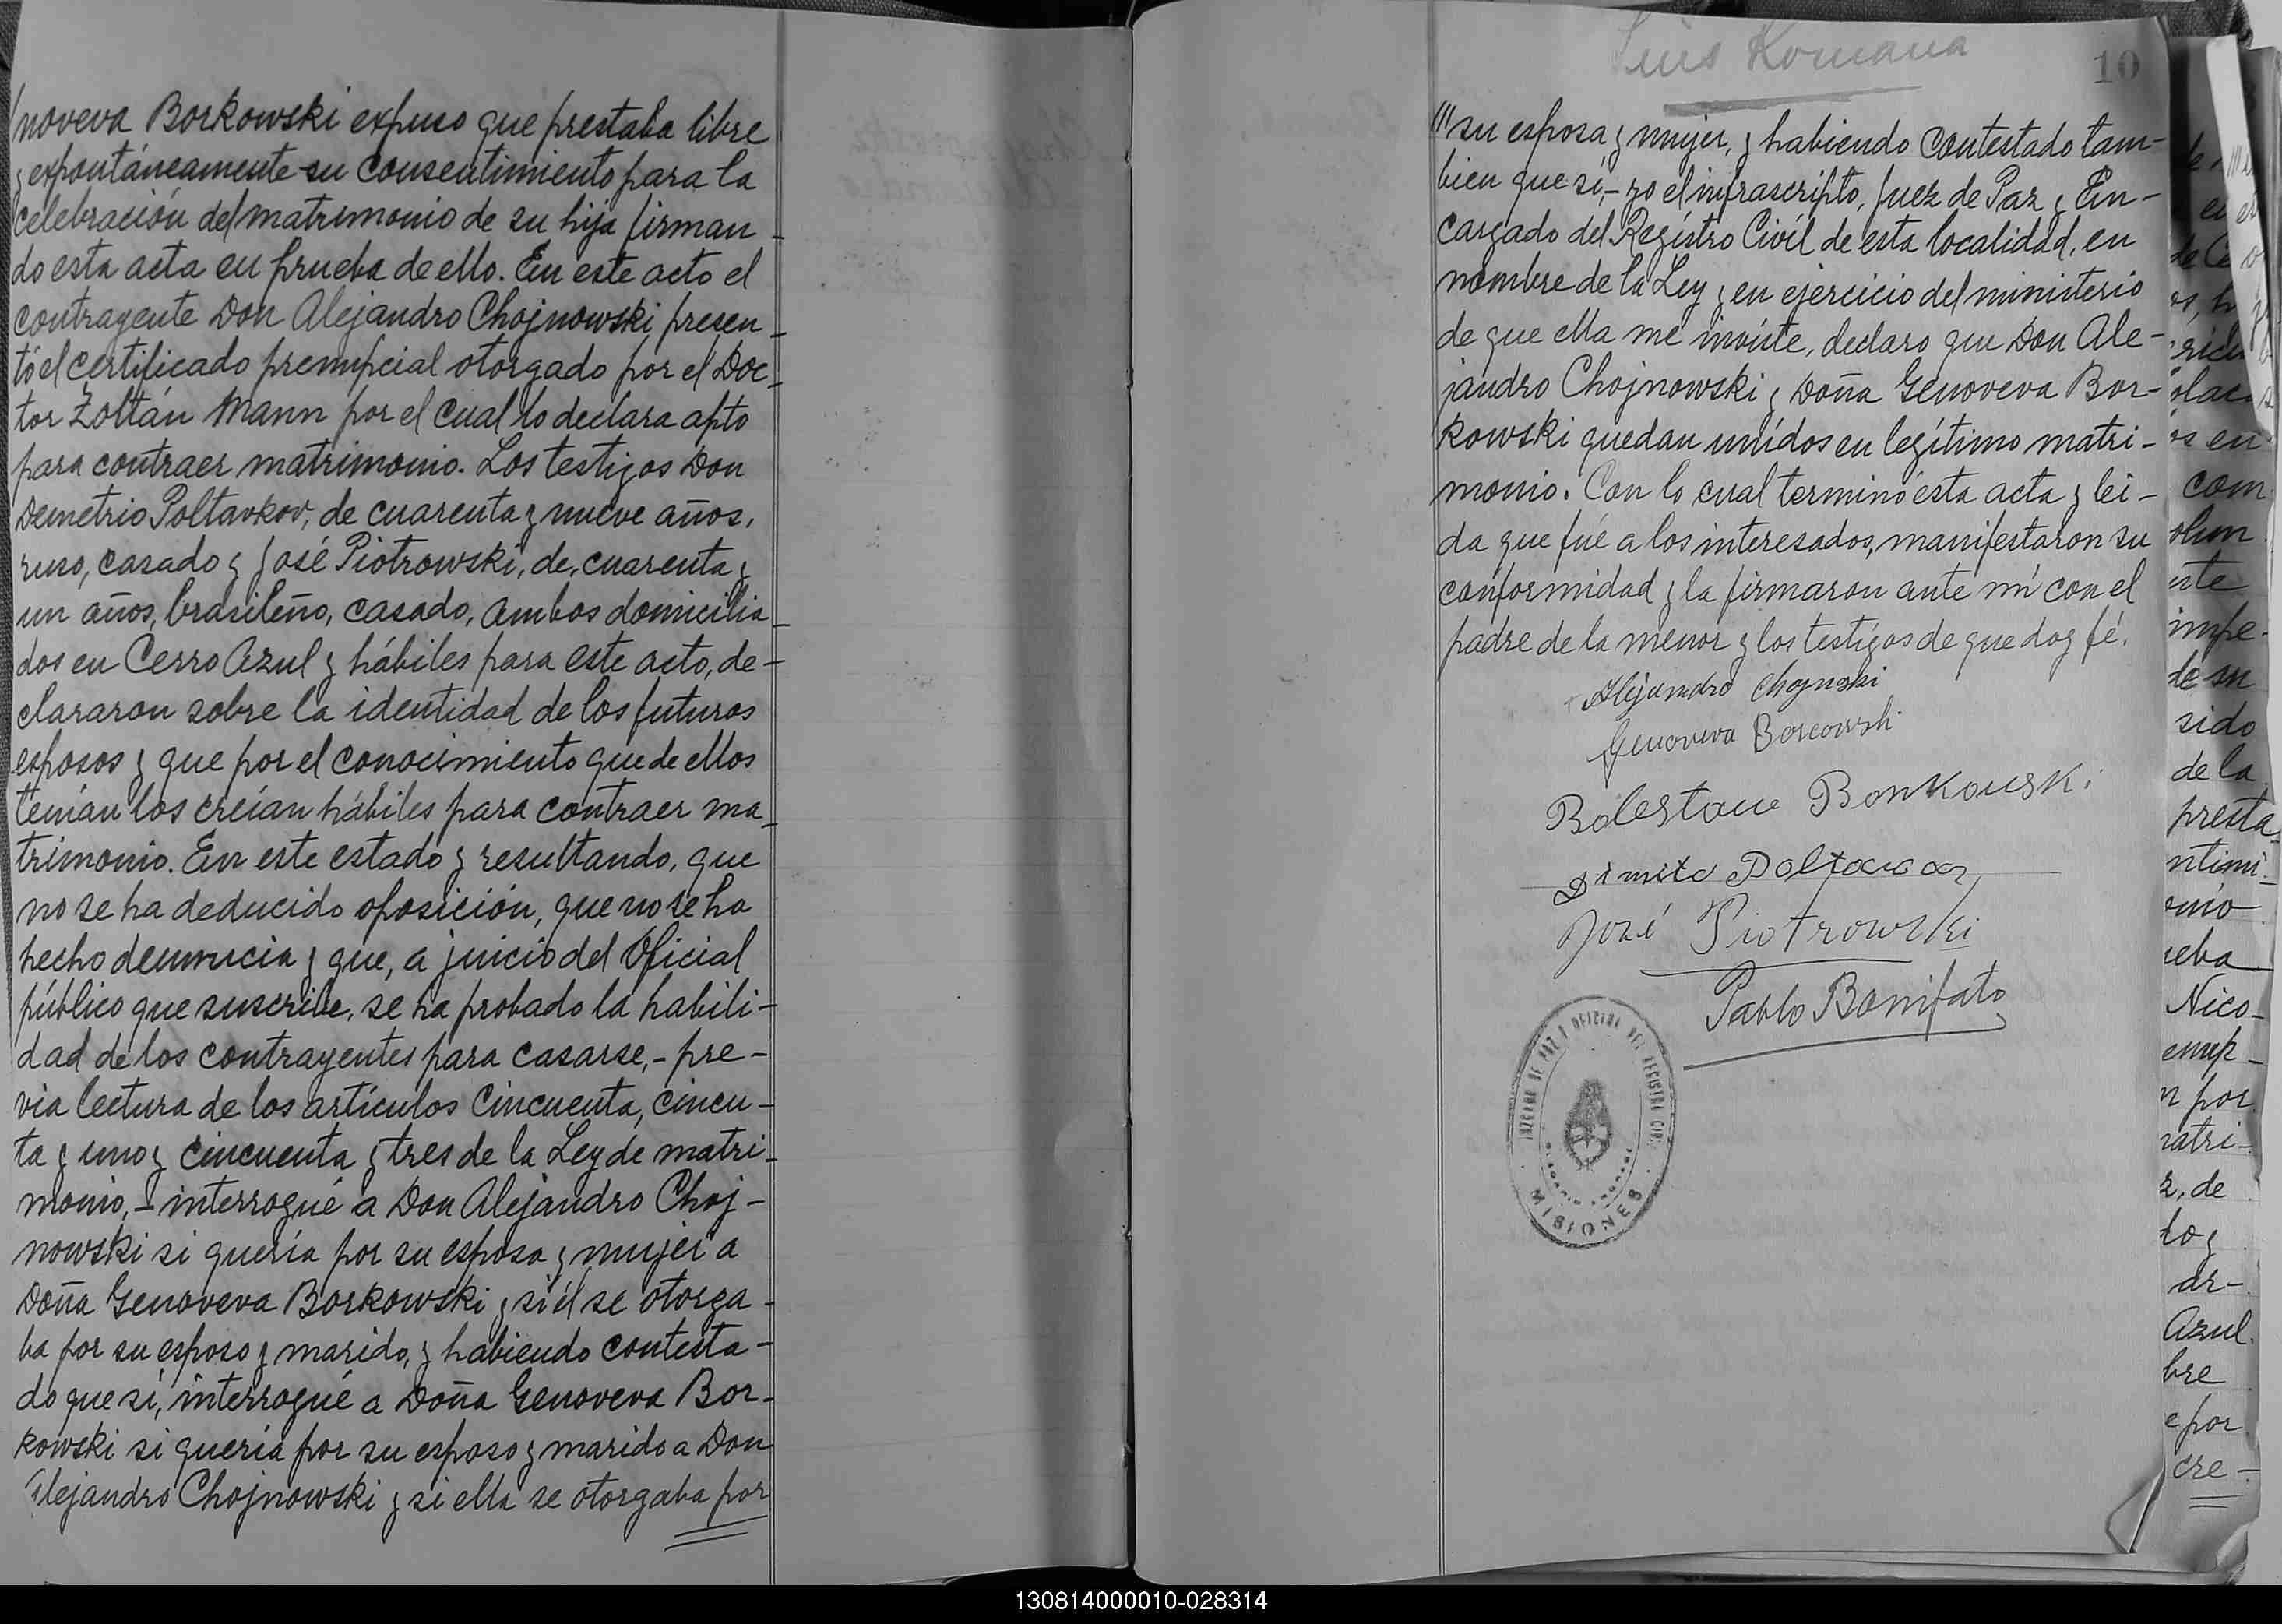 noveva Borkowski expuso que prestaba libre
y expontáneamente su consentimiento para la
celebración del matrimonio de su hija firman-
do esta acta en prueba de ello. En este acto el
contrayente Don Alejandro Chojnowski, presen-
tó el certificado prenupcial otorgado por el Doc-
tor Zoltán Mann por el cual lo declara apto
para contraer matrimonio. Los testigos Don
Demetrio Poltavkov, de cuarenta y nueve años,
ruso, casado y José Piotrowski, de cuarenta y
un años, brasileño, casado, ambos domicilia-
dos en Cerro Azul y hábiles para este acto, de-
clararon sobre la identidad de los futuros
esposos y que por el conocimiento que de ellos
tenían los creían hábiles para contraer ma-
trimonio. En este estado y resultando, que
no se ha deducido oposición, que no se ha
hecho denuncia y que, a juicio del Oficial
público que suscribe, se ha probado la habili-
dad de los contrayentes para casarse,- pre-
via lectura de los artículos cincuenta, cincu-
ta y uno y cincuenta y tres de la Ley de matri-
monio,- interrogué a Don Alejandro Choj-
nowski si quería por su esposa y mujer a
Doña Genoveva Borkowski y si él se otorga-
ba por su esposo y marido, y habiendo contesta-
do que sí, interrogué a Doña Genoveva Bor-
kowski si quería por su esposo y marido a Don
Alejandro Chojnowski y si ella se otorgaba por
Luis Romana
10
///su esposa y mujer, y habiendo contestado tam-
bien que sí,- yo el infrascripto, Juez de Paz y En-
cargado del Registro Civil de esta localidad, en
nombre de la Ley y en ejercicio del ministerio
de que ella me inviste, declaro que Don Ale-
jandro Chojnowski y Doña Genoveva Bor-
kowski quedan unidos en legítimo matri-
monio. Con lo cual terminó esta acta y lei-
da que fué a los interesados, manifestaron su
conformidad y la firmaron ante mí con el
padre de la menor y los testigos de que doy fé.
Alejandro Chojnoski
Genoveva Borcowski
Bolestaue Bonkouski
José Piotrowski
Pablo Bonifato
JUZGADO DE PAZ Y OFICINA DEL REGISTRO CIVIL
MISIONES
com
de su
sido
de la
presta
Nico-
n por
Azul
bre
e por
cre-
130814000010-028314